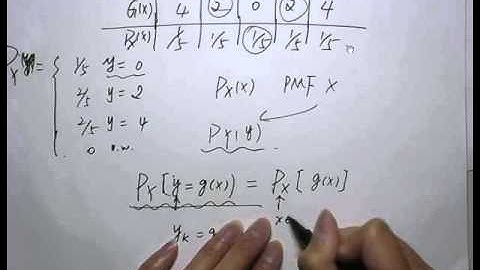 G(x) 4 2 0 2 4
Px(x) 1/5 1/5 1/5 1/5 1/5
Px(y) = { 1/5 y = 0
2/5 y = 2
2/5 y = 4
0 o.w.
Px(x) PMF X
Px(y)
Px[y = g(x)] = Px[g(x)]
yk = g
x